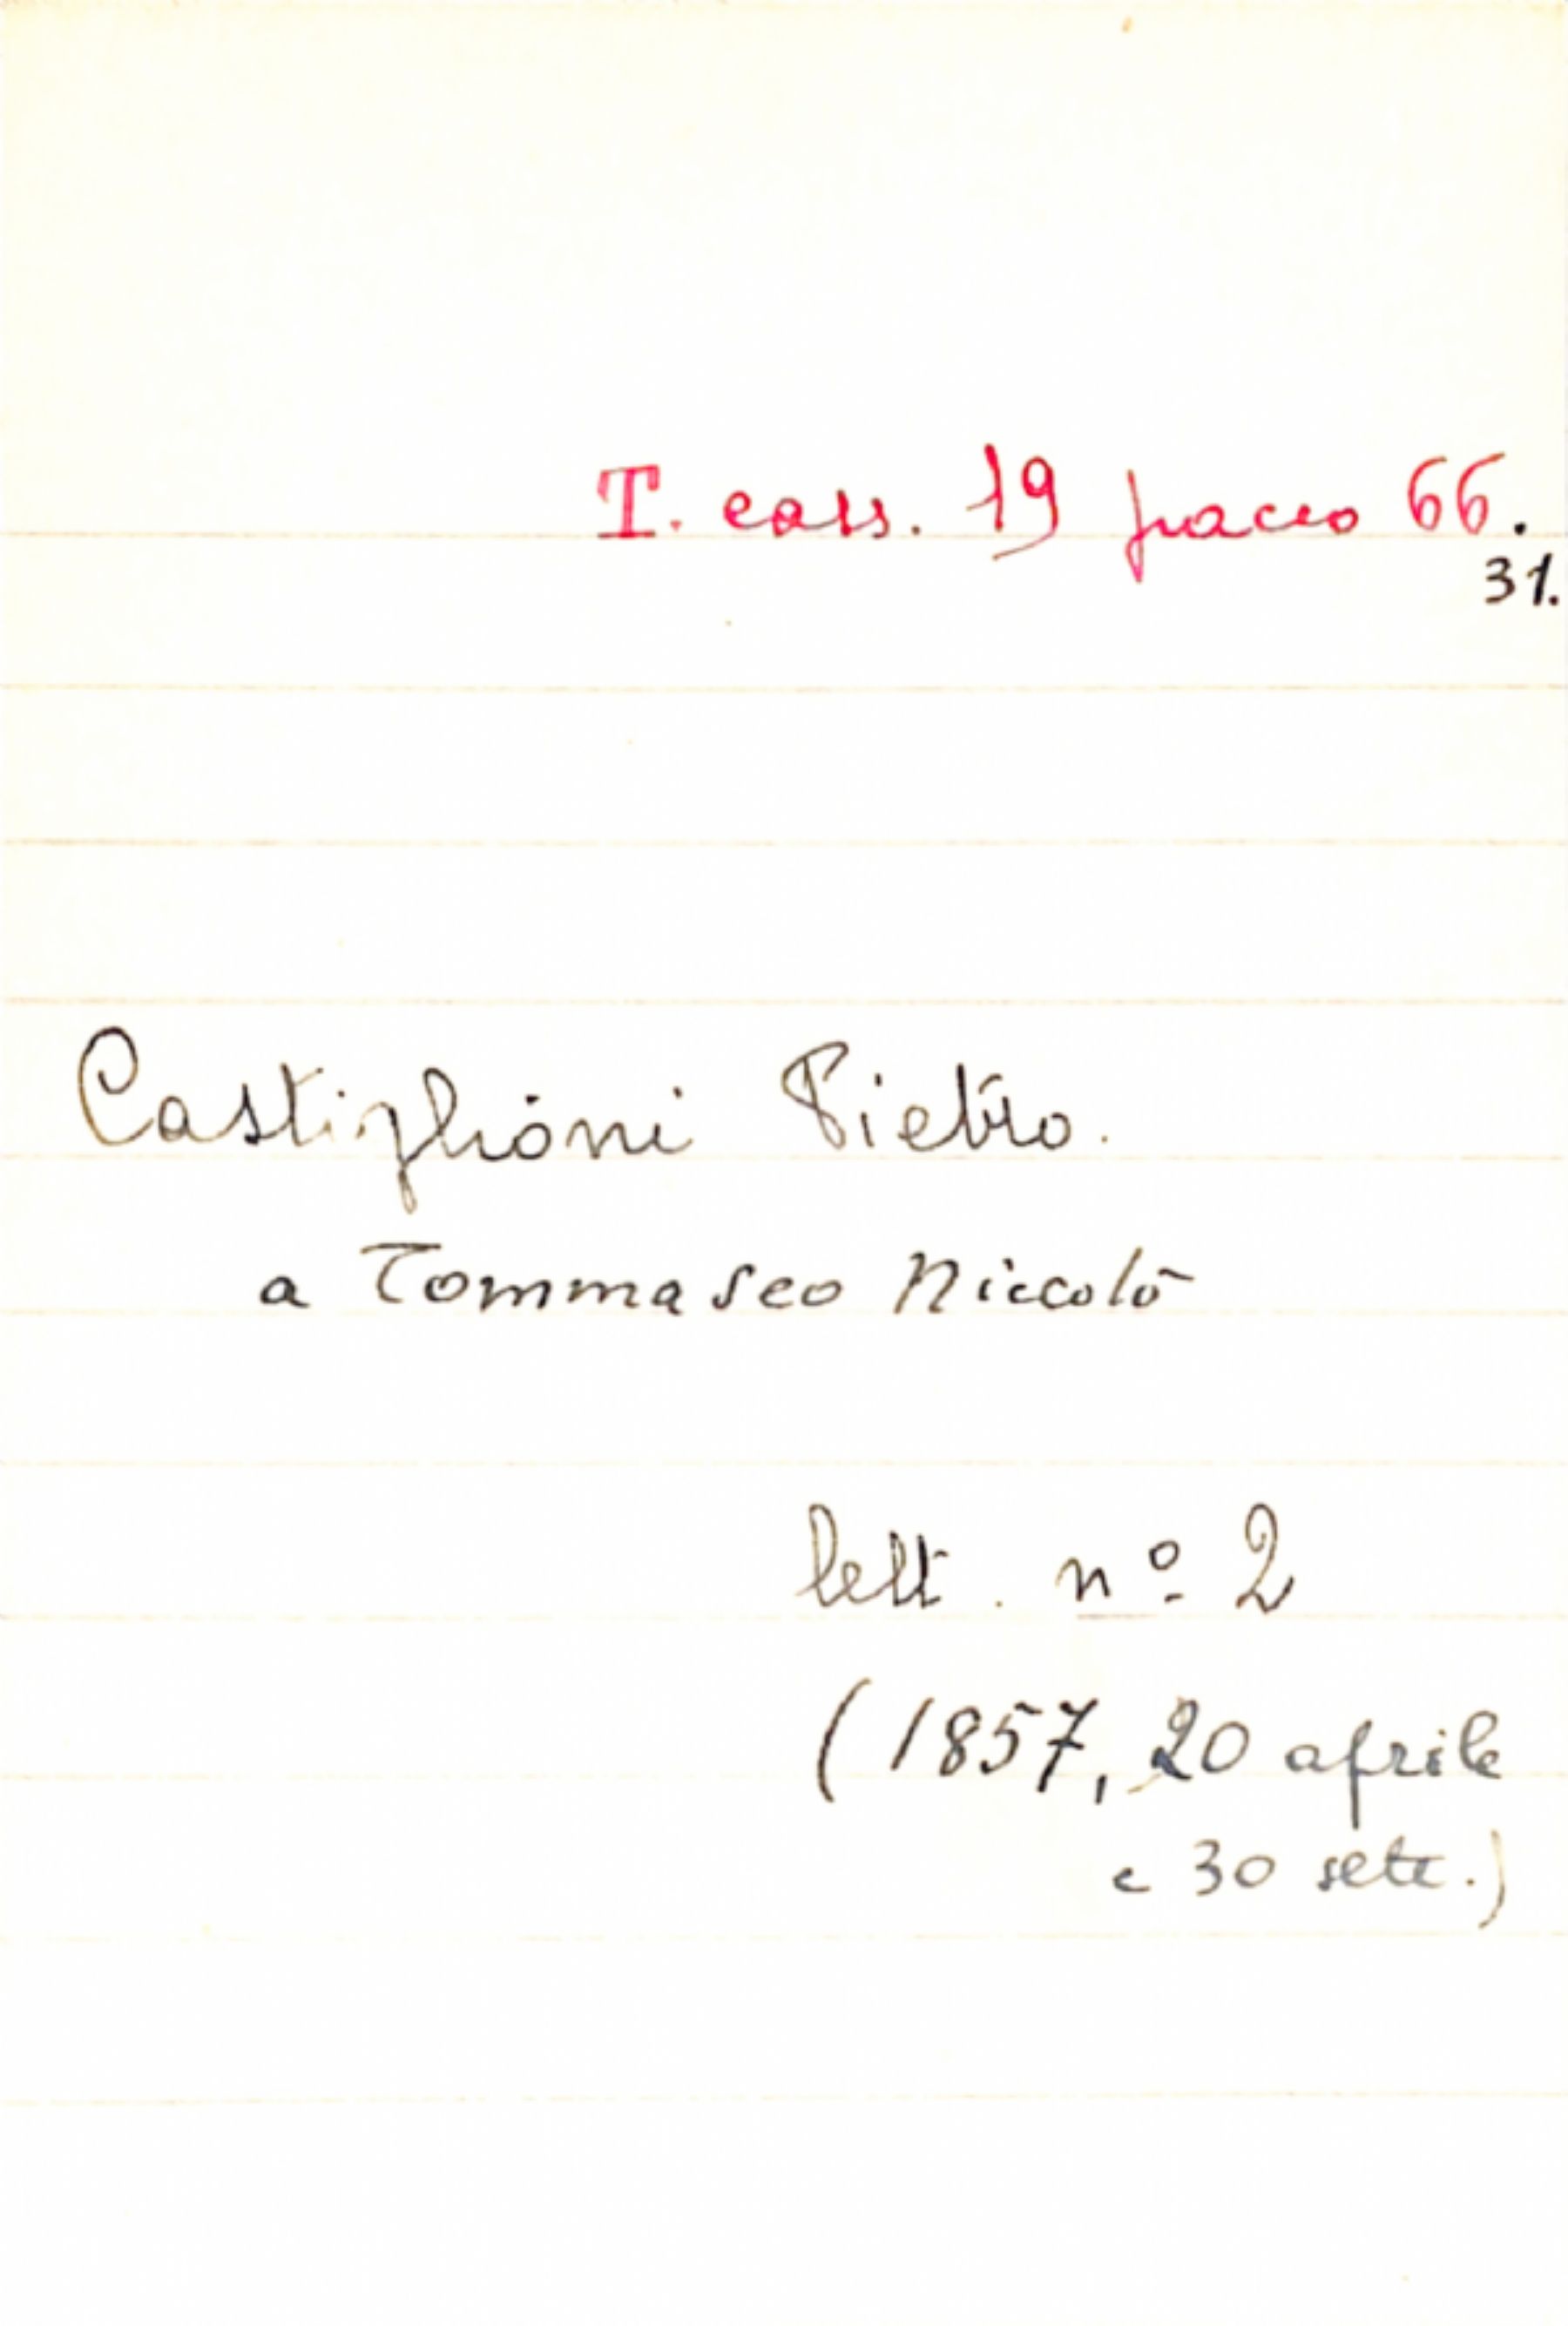 T. cass. 19 pacco 66.
31.
Castiglioni Pietro.
a Tommaseo Niccolò
lett. nº 2
(1857, 20 aprile
e 30 sett.)